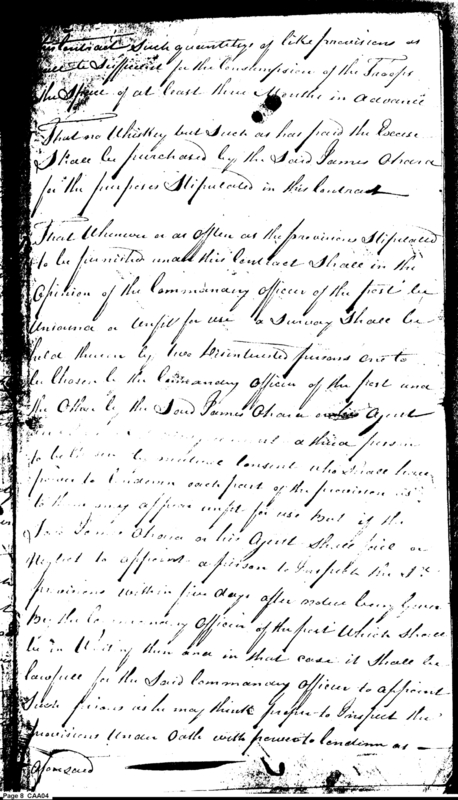 Such quantitys of like provisions as
to Sufficient for the Consumpsion of the Troops
the Space of at least three Months in advance
That no Whiskey but Such as has paid the Excise
Shall be purchased by the Said James Ohara
for the purposes Stipulated in this Contract
That Whenever or as often as the provisions Stipulated
to be furnished under this Contract Shall in the
Opinion of the Commanding Officer of the post be
Unsound or Unfit for use a Survay Shall be
held theron by two Disinterested persons one to
be Chosen by the Commanding Officer of the post and
the Other by the Said James Ohara or his Agent
a third person
to be by mutual Consent who Shall have
power to Condemn each part of the provision as
to them may appear unfit for use But if the
Said James Ohara or his Agent Shall fail or
Neglect to appoint a person to Inspect the Sd.
provisions within five days after notice being given
by the Commanding Officer of the post Which Shall
be in Writing then and in that case it Shall be
lawfull for the Said Commanding Officer to appoint
Such persons as he may think proper to Inspect the
provisions Under Oath with power to Condemn as —
aforesaid
Page 8 CAA04